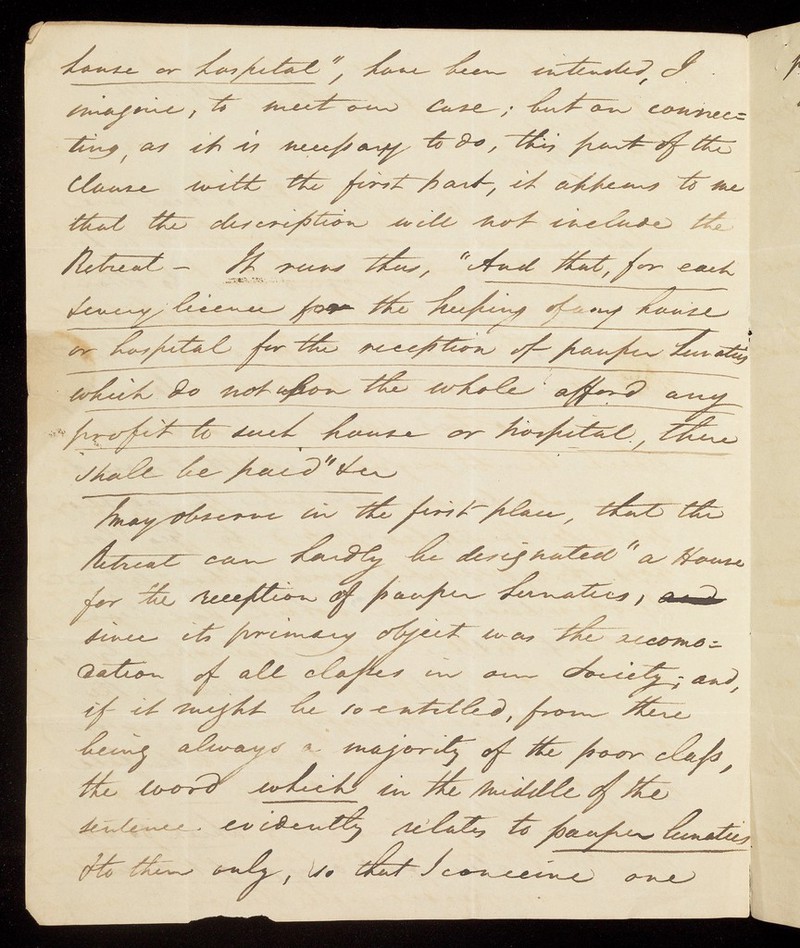 house or hospital", have been intended, I
imagine, to meet our case; but on connec=
ting, as it is necessary to do, this part of the
Clause with the first part, it appears to me
that the description will not include the
Retreat – It runs thus, "And that, for each
& every licence for the keeping of any house
or hospital for the reception of pauper lunatics
which do not upon the whole afford any
profit to such house or hospital, there
shall be paid" &c
I may observe in the first place, that the
Retreat can hardly be designated "a House
for the reception of pauper Lunatics, and
since its primary object was the accomo=
dation of all classes in our Society; and,
if it might be so entitled, from there
being always a majority of the poor class,
the word which in the middle of the
sentence evidently relates to pauper lunatics
& to them only, so that I conceive one